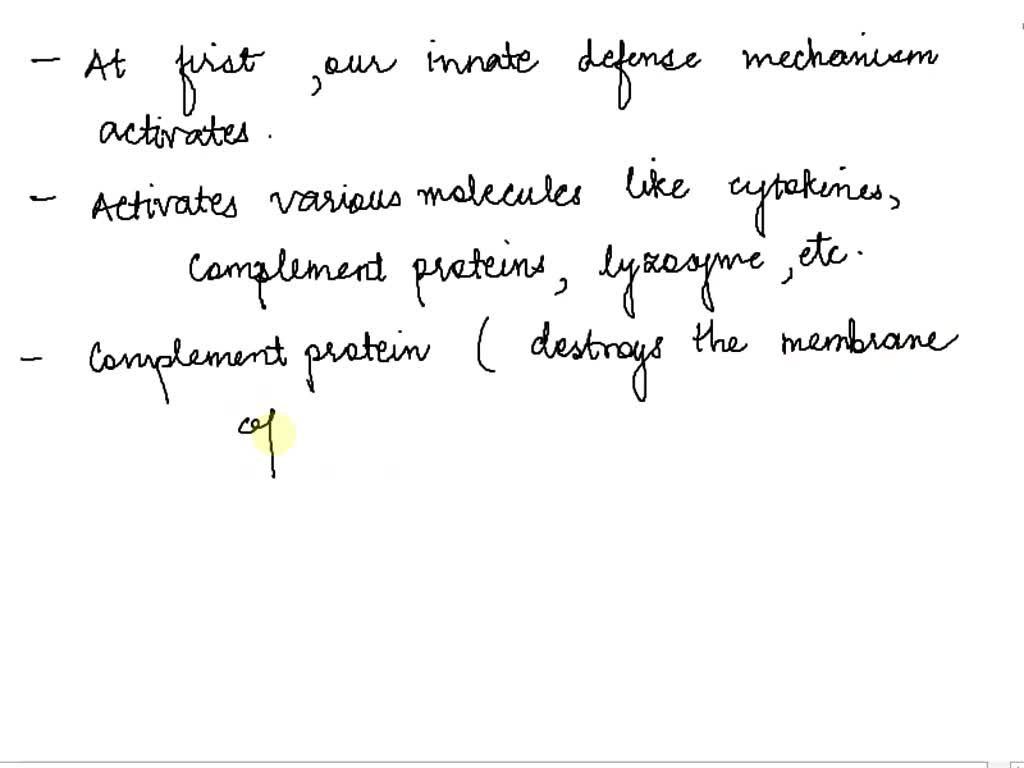 - At first , our innate defense mechanism
activates .
- Activates various molecules like cytokines,
complement proteins, lyzosyme , etc.
- Complement protein ( destroys the membrane
of